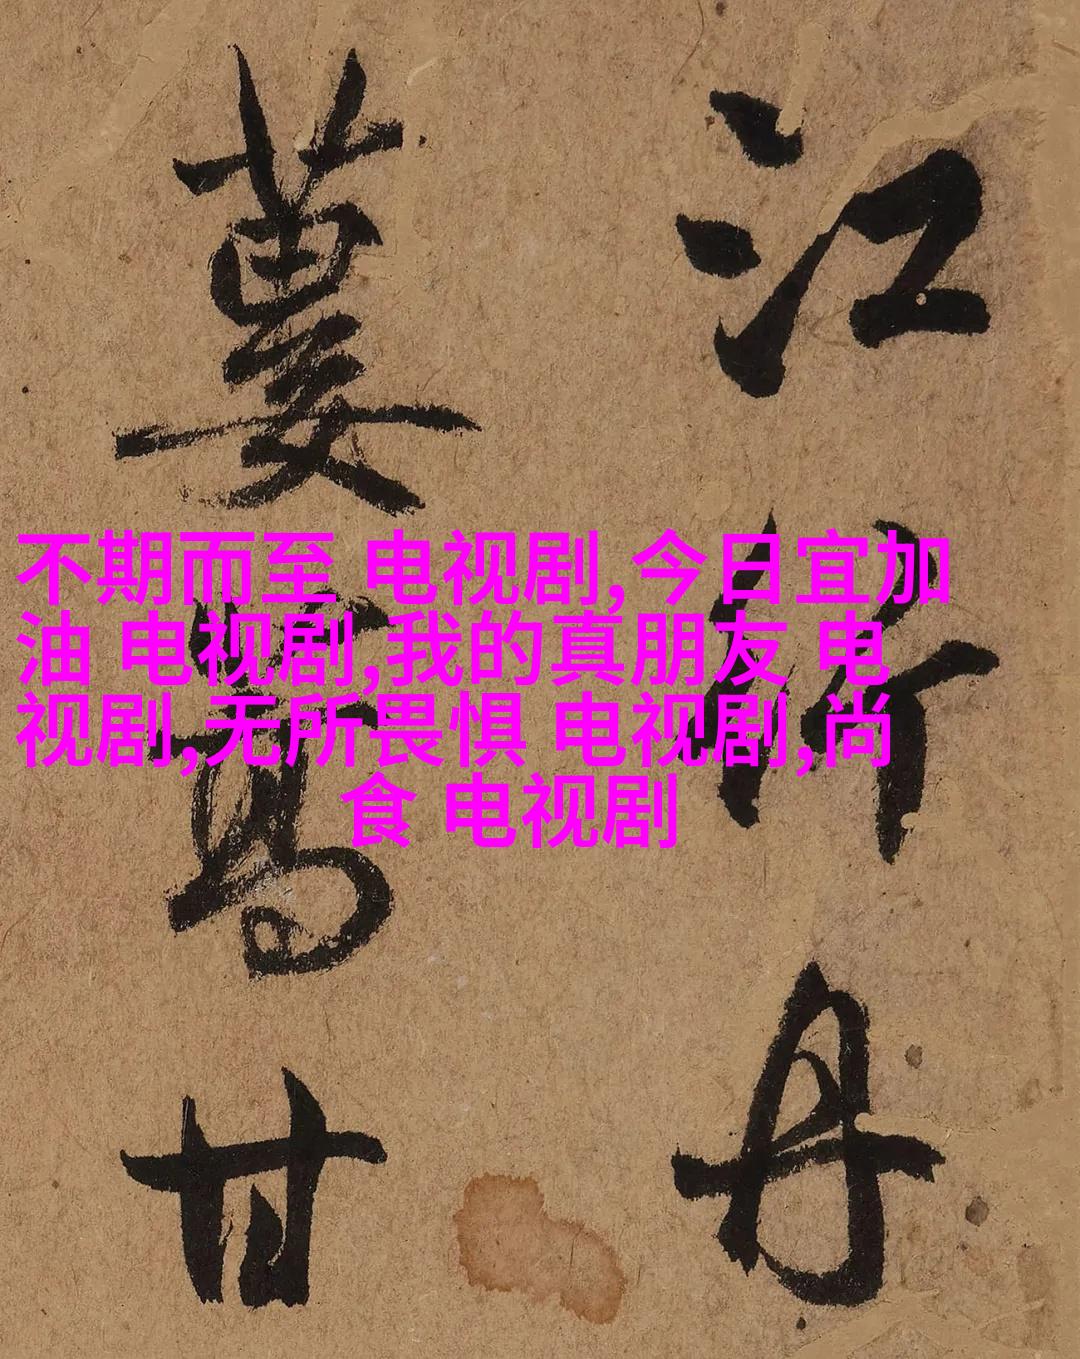 江 丹
蔞蒿甘
不期而至 电视剧,今日宜加
油 电视剧,我的真朋友 电
视剧,无所畏惧 电视剧,尚
食 电视剧